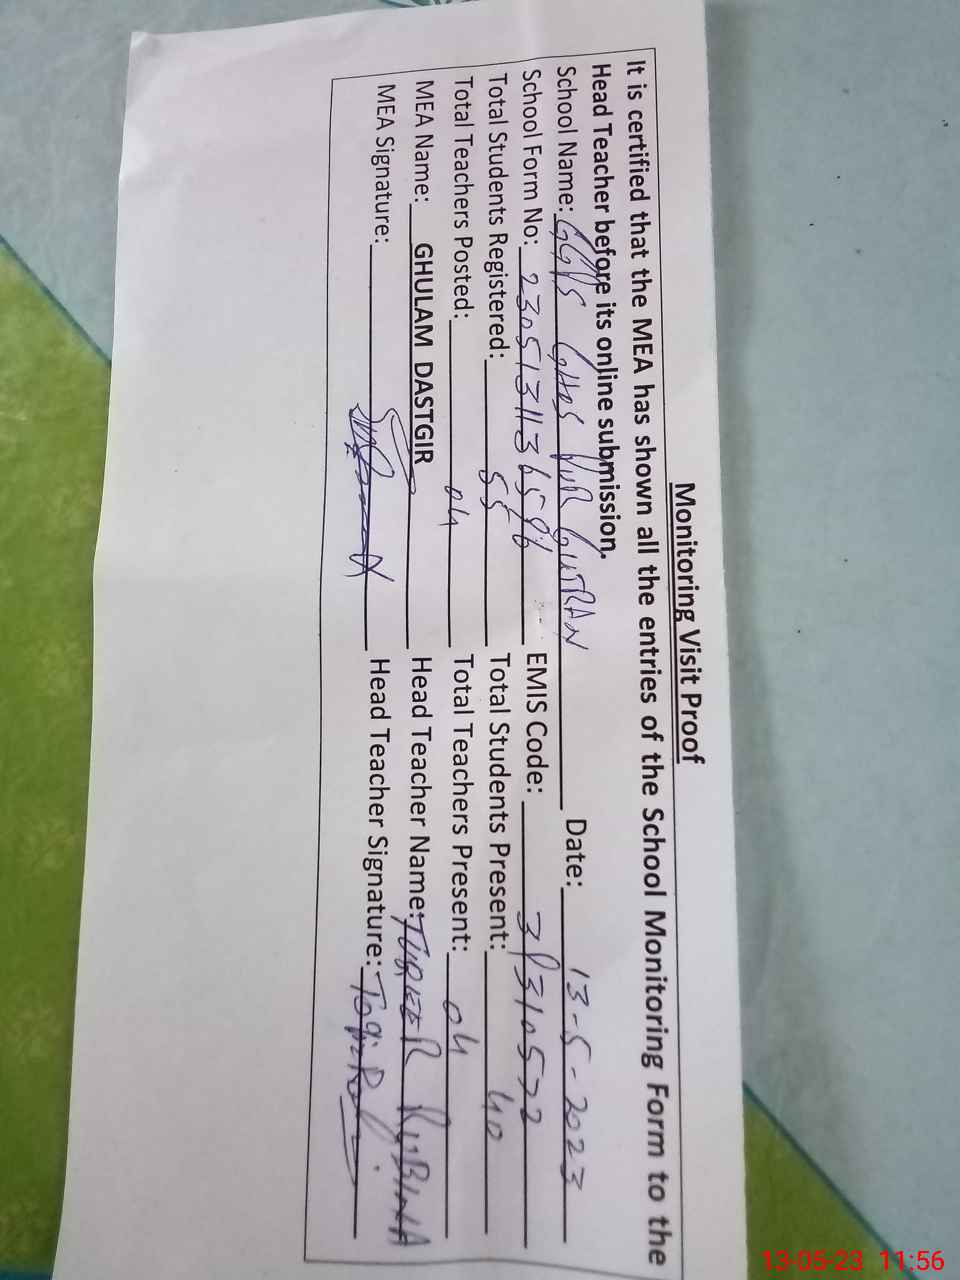 Monitoring Visit Proof
It is certified that the MEA has shown all the entries of the School Monitoring Form to the
Head Teacher before its online submission.
School Name: GGPS GHOS PUR GUJRAN Date: 13-5-2023
School Form No: EMIS Code:
Total Students Registered: 55 Total Students Present: 40
Total Teachers Posted: 04 Total Teachers Present: 04
MEA Name: GHULAM DASTGIR Head Teacher Name: RUBINA
MEA Signature: Head Teacher Signature:
13-05-23 11:56